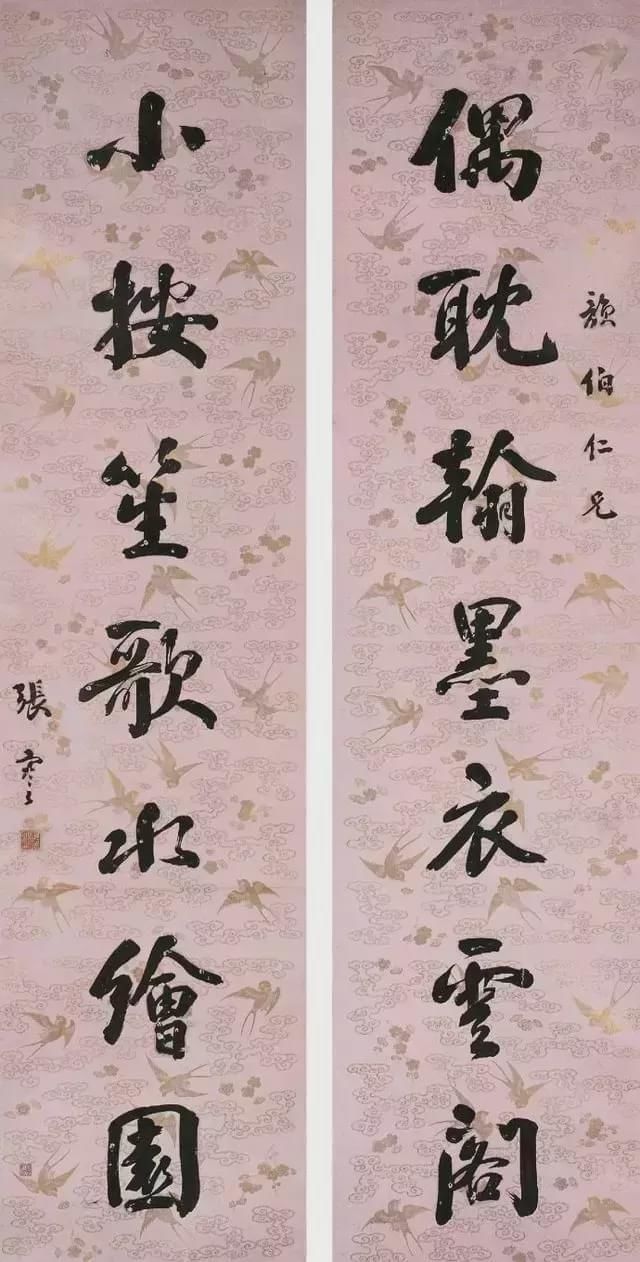 偶耽翰墨衣雲閣
伯仁兄
小按笙歌水繪園
張謇